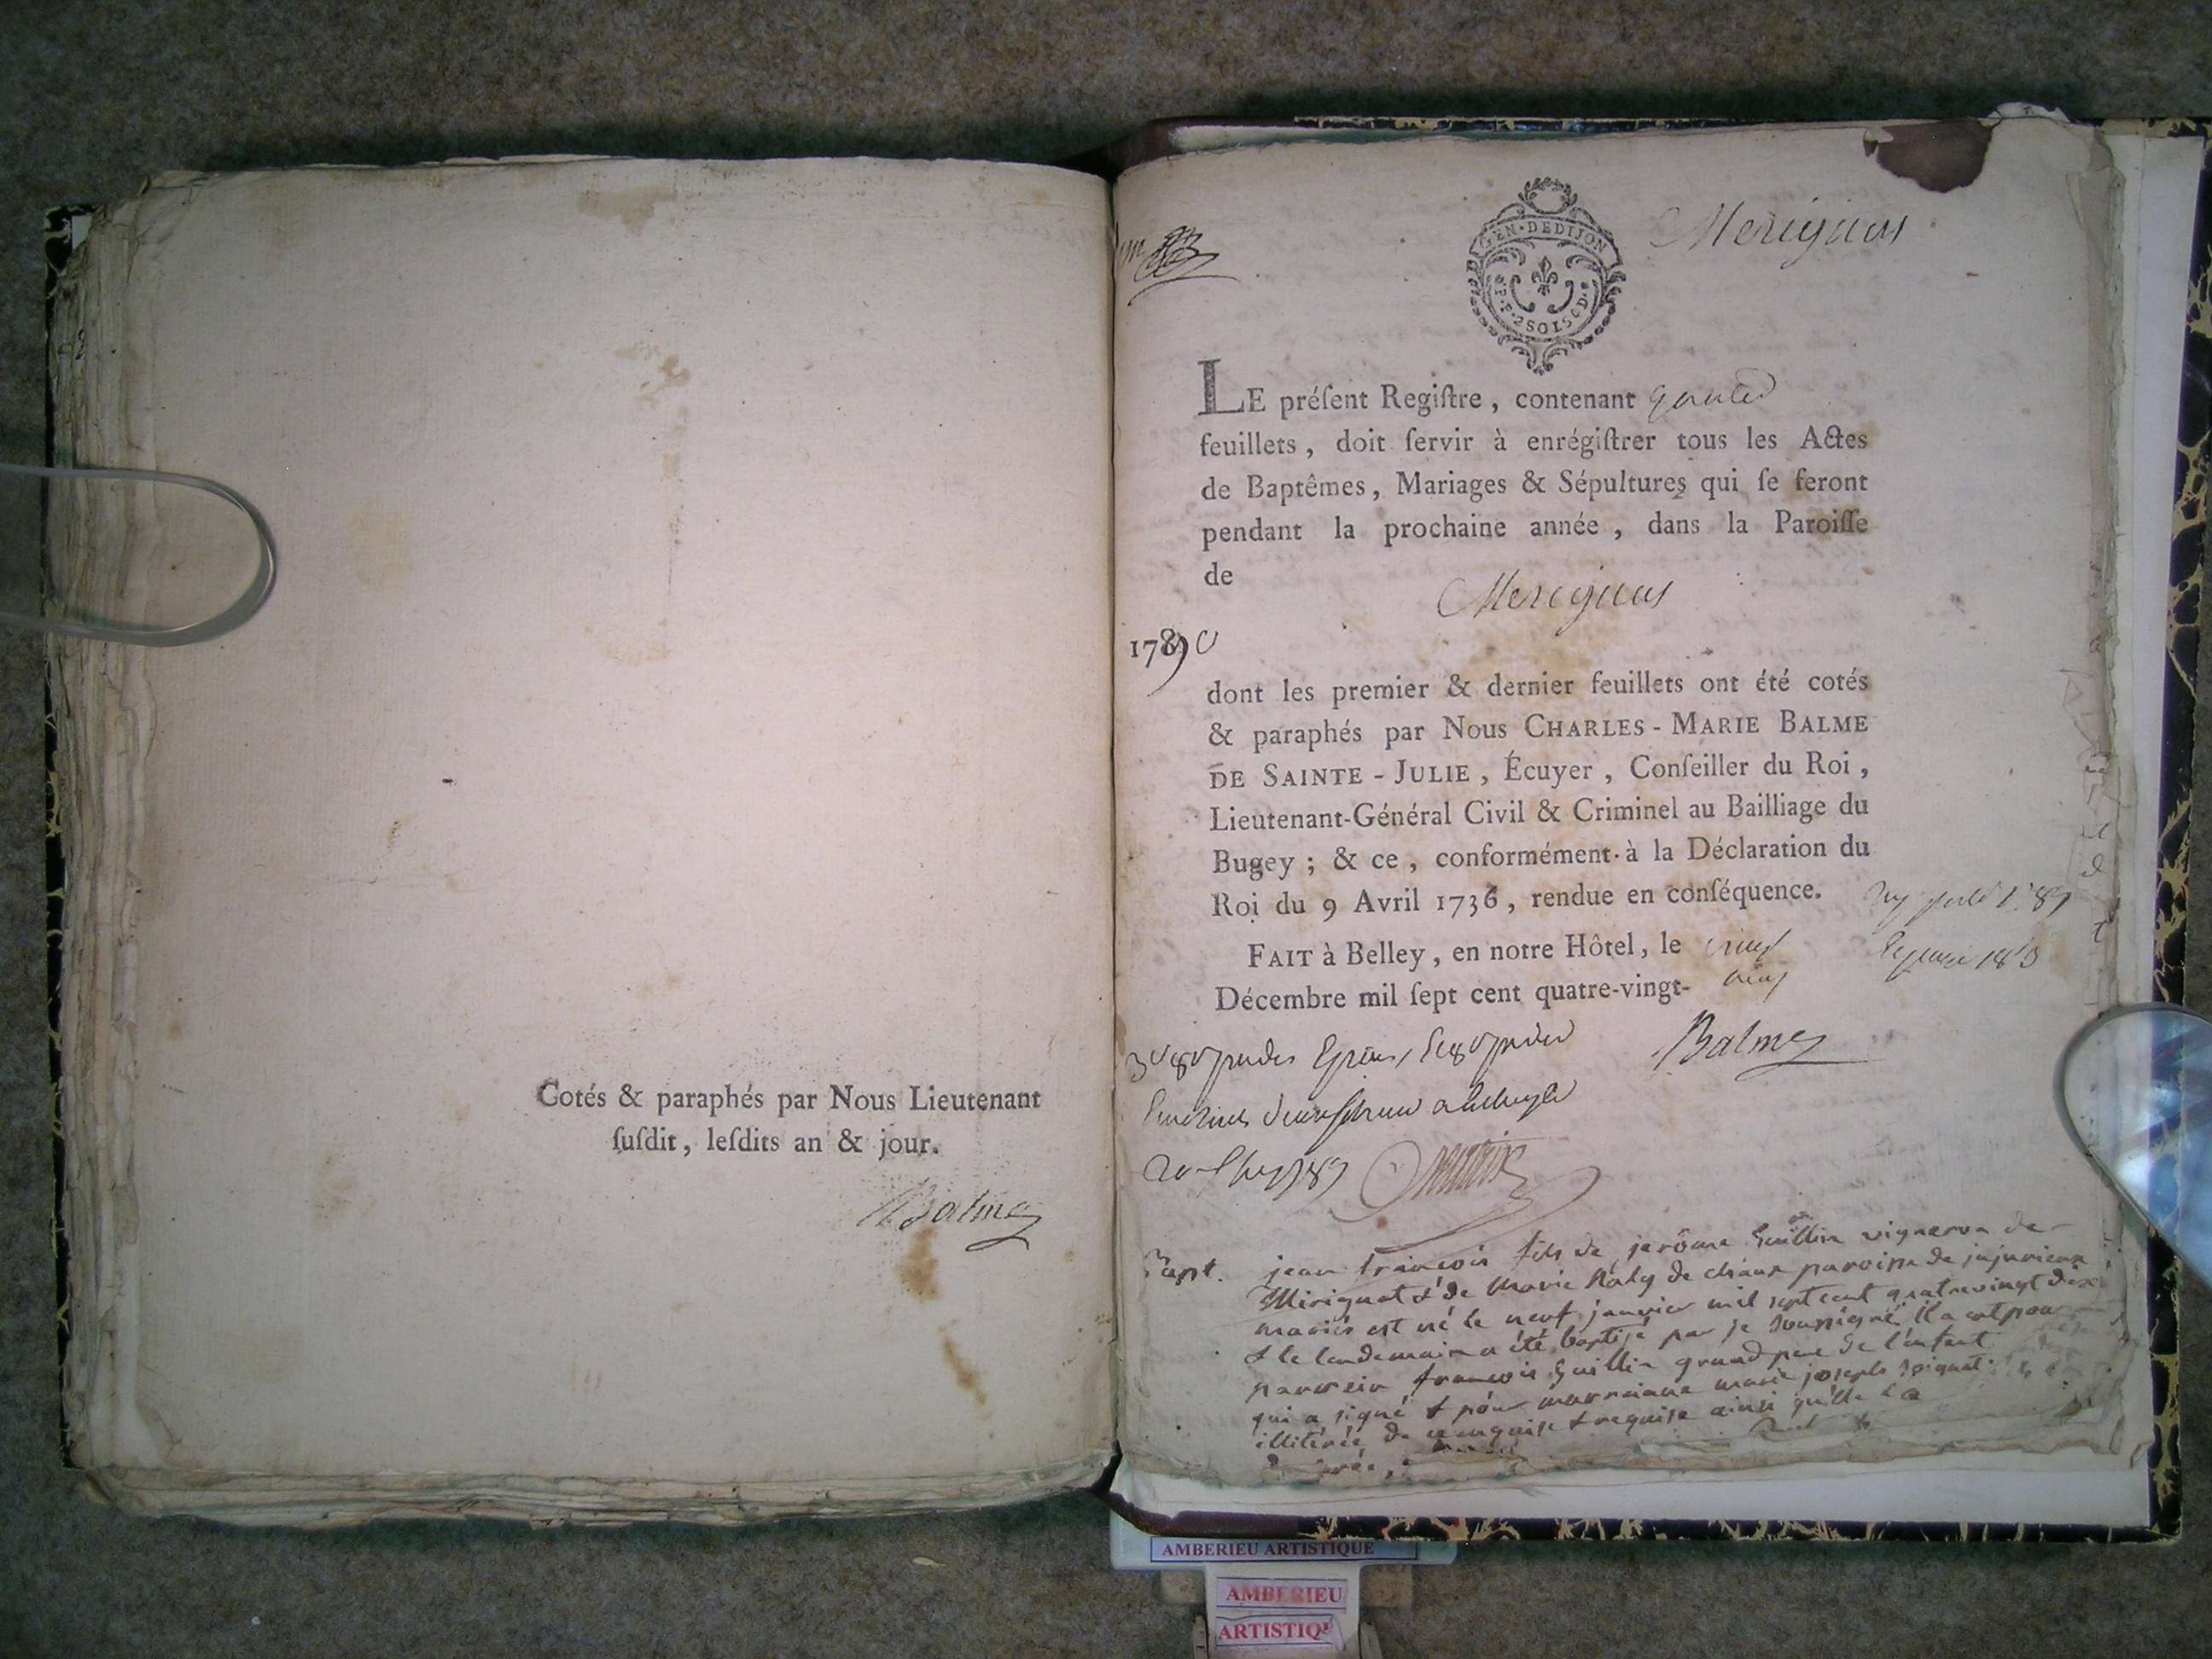 Cotés & paraphés par Nous Lieutenant
ſuſdit, leſdits an & jour.
Balme
GEN·DEDIJON
Merignas
LE préſent Regiſtre, contenant
feuillets, doit ſervir à enrégiſtrer tous les Actes
de Baptêmes, Mariages & Sépultures qui ſe feront
pendant la prochaine année, dans la Paroiſſe
de
Merignas
1790
dont les premier & dernier feuillets ont été cotés
& paraphés par Nous CHARLES-MARIE BALME
DE SAINTE-JULIE, Écuyer, Conſeiller du Roi,
Lieutenant-Général Civil & Criminel au Bailliage du
Bugey; & ce, conformément à la Déclaration du
Roi du 9 Avril 1736, rendue en conſéquence.
FAIT à Belley, en notre Hôtel, le vingt
Décembre mil ſept cent quatre-vingt- neuf
Balme
Bapt. jean françois fils de jerôme Guillin vigneron de
Mérignat & de Marie Naly de chaux paroisse de jujurieux
mariés est né le neuf janvier mil sept cent quatrevingt dix
& le lendemain a été baptisé par je soussigné il a eut pour
parrein françois Guillin grand pere de l'enfant
qui a signé & pour marraine marie joseph
illitérée de enquise & requise ainsi qu'elle l'a
AMBERIEU ARTISTIQUE
AMBERIEU
ARTISTIQ